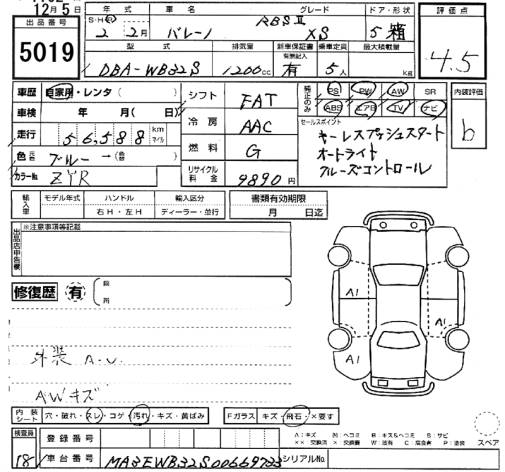 12月5日
出品番号
5019
年式 車名 グレード ドア・形状
S・H・R
2年 2月 バレーノ RBSⅡ XS 5 箱
評価点
4.5
型式 排気量 新車保証書 乗車定員 最大積載量
有無記入
DBA-WB32S 1200cc 有 5人 kg
車歴 自家用・レンタ( )
車検 年 月( )
走行 56,588 km マイル
色 元色 ブルー→( 色)
カラーNo. ZYR
シフト FAT
冷房 AAC
燃料 G
リサイクル料金 9890円
純正のみ PS PW AW SR
ABS エアB TV ナビ
セールスポイント
キーレスプッシュスタート
オートライト
クルーズコントロール
内装評価
b
輸入車 モデル年式 ハンドル 輸入区分
年 右H・左H ディーラー・並行
書類有効期限
月 日迄
出品店申告欄 ※注意事項等記載
修復歴 有
箇所
外装 A.U.
AWキズ
A1
A1 A1
内装 シート 穴・破れ・スレ・コゲ 汚れ・キズ・黄ばみ
Fガラス キズ・飛石・X要す
スペア
検査員
18
登録番号
車台番号 MA3EWB32S00669723
シリアルNo.
A:キズ M:ヘコミ B:キズ&ヘコミ S:サビ
XX:交換済 X:要交換 W:波有 C:腐食有 P:塗装